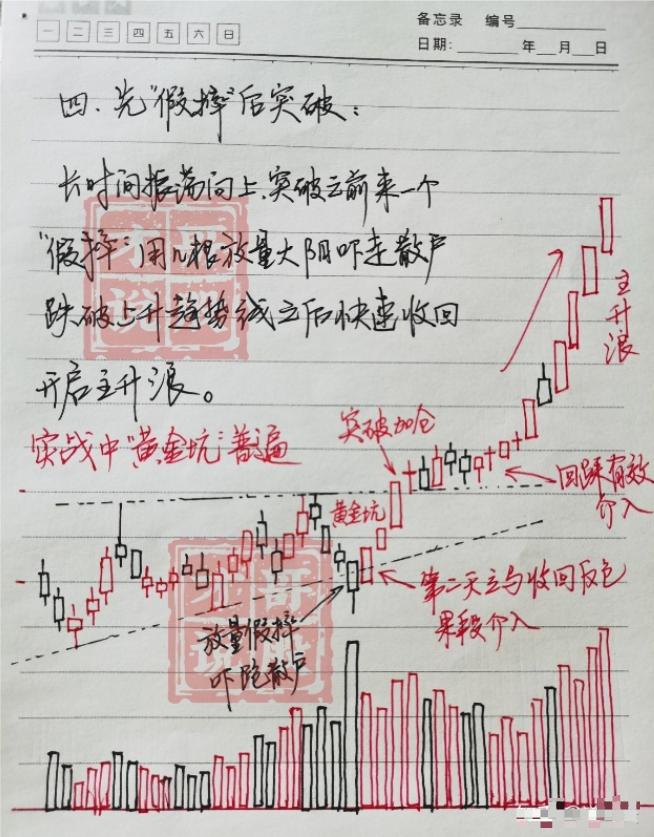 备忘录 编号
一 二 三 四 五 六 日
日期: 年 月 日
四、先“假摔”后突破:
长时间振荡向上,突破之前来一个
“假摔”用几根放量大阴吓走散户
跌破上升趋势线之后快速收回
开启主升浪。
实战中“黄金坑”普遍
突破加仓
主升浪
黄金坑
回踩有效
介入
第二天立马收回反包
果断介入
放量假摔
吓跑散户